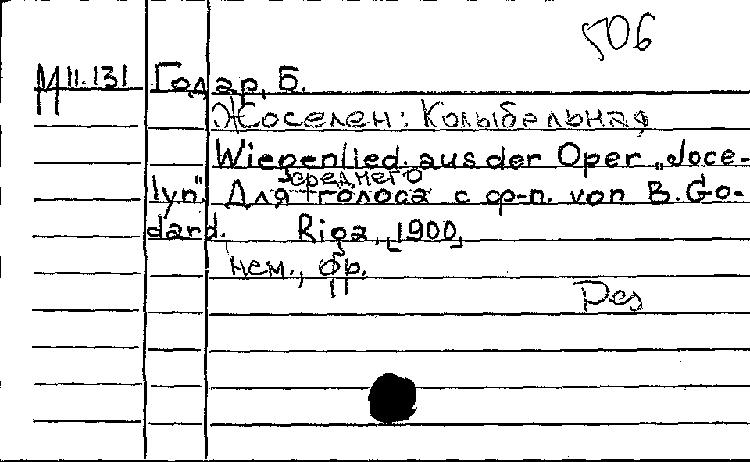 506
М 11.131 Годар, Б.
Жоселен: Колыбельная
Wiegenlied aus der Oper „Joce-
среднего
lyn“. Для голоса с ф-п. von B. Go-
dard. Riga, [1900]
нем., фр.